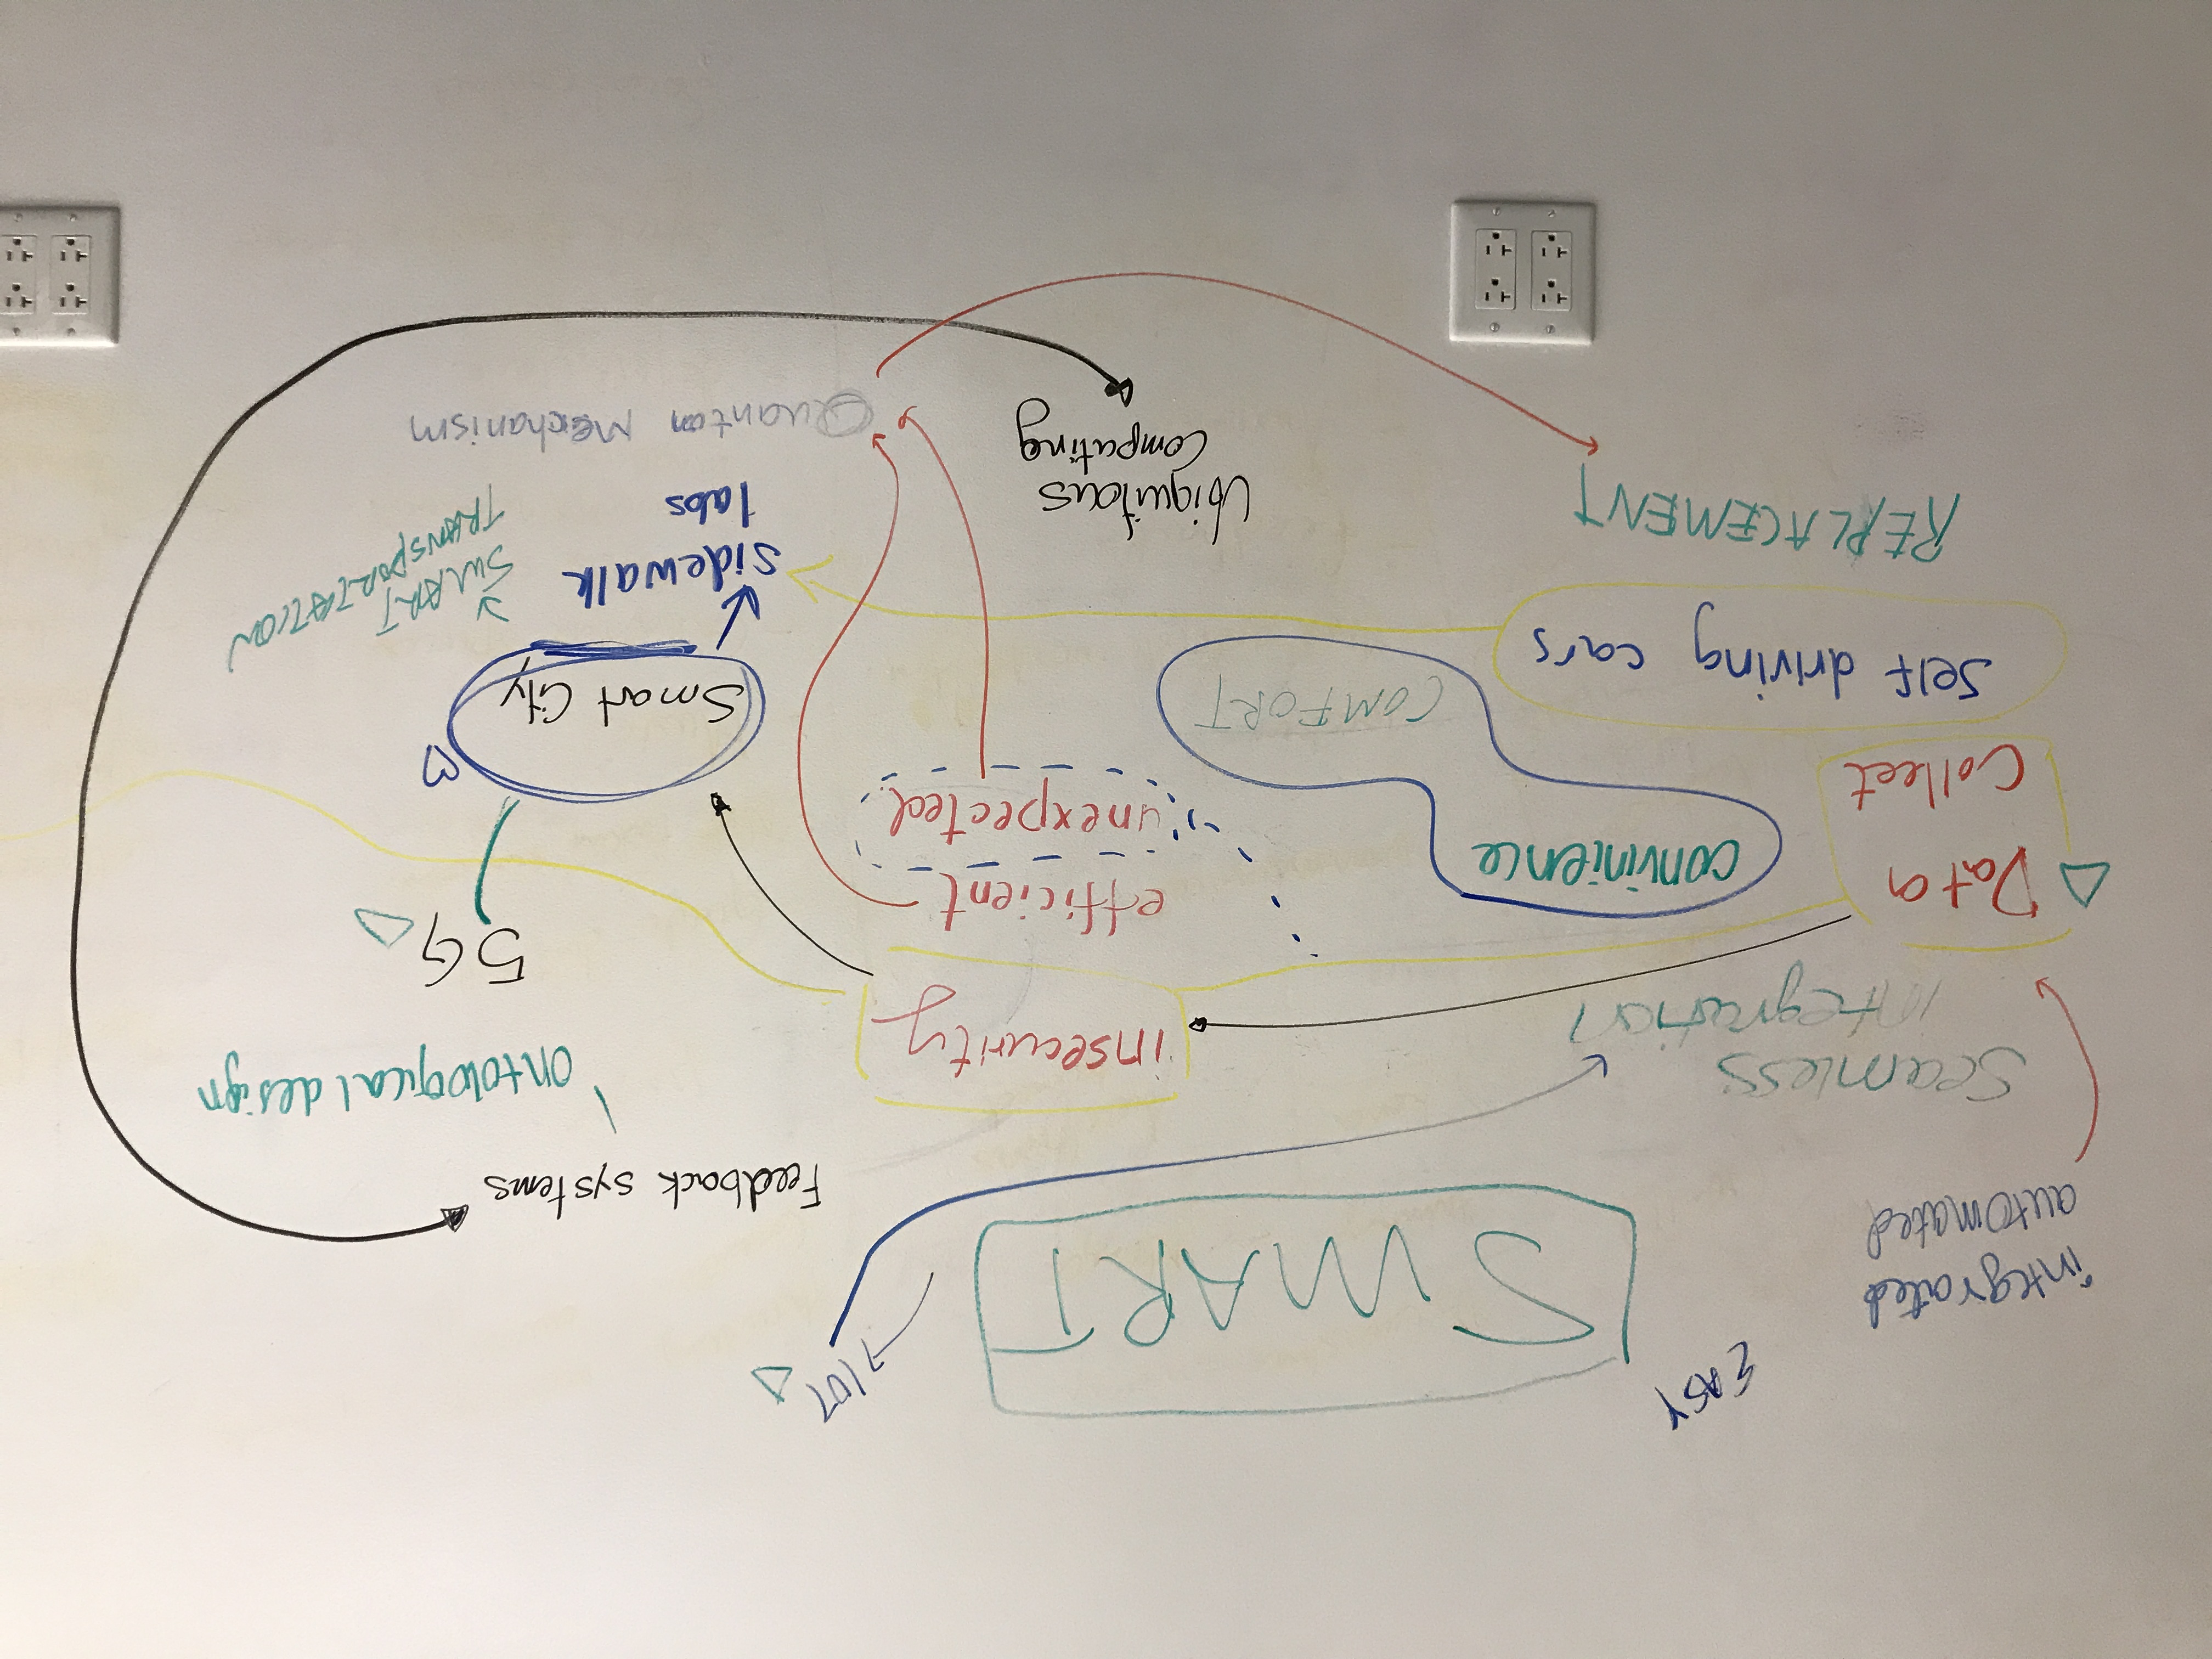 EASY
SMART
IOT
integrated
automated
Feedback systems
ontological design
Seamless
integration
insecurity
5G
Data
Collect
convinience
efficient
unexpected
COMFORT
Smart City
Self driving cars
sidewalk
labs
SMART
TRANSPORTATION
REPLACEMENT
Ubiquitous
Computing
Quantom Mechanism